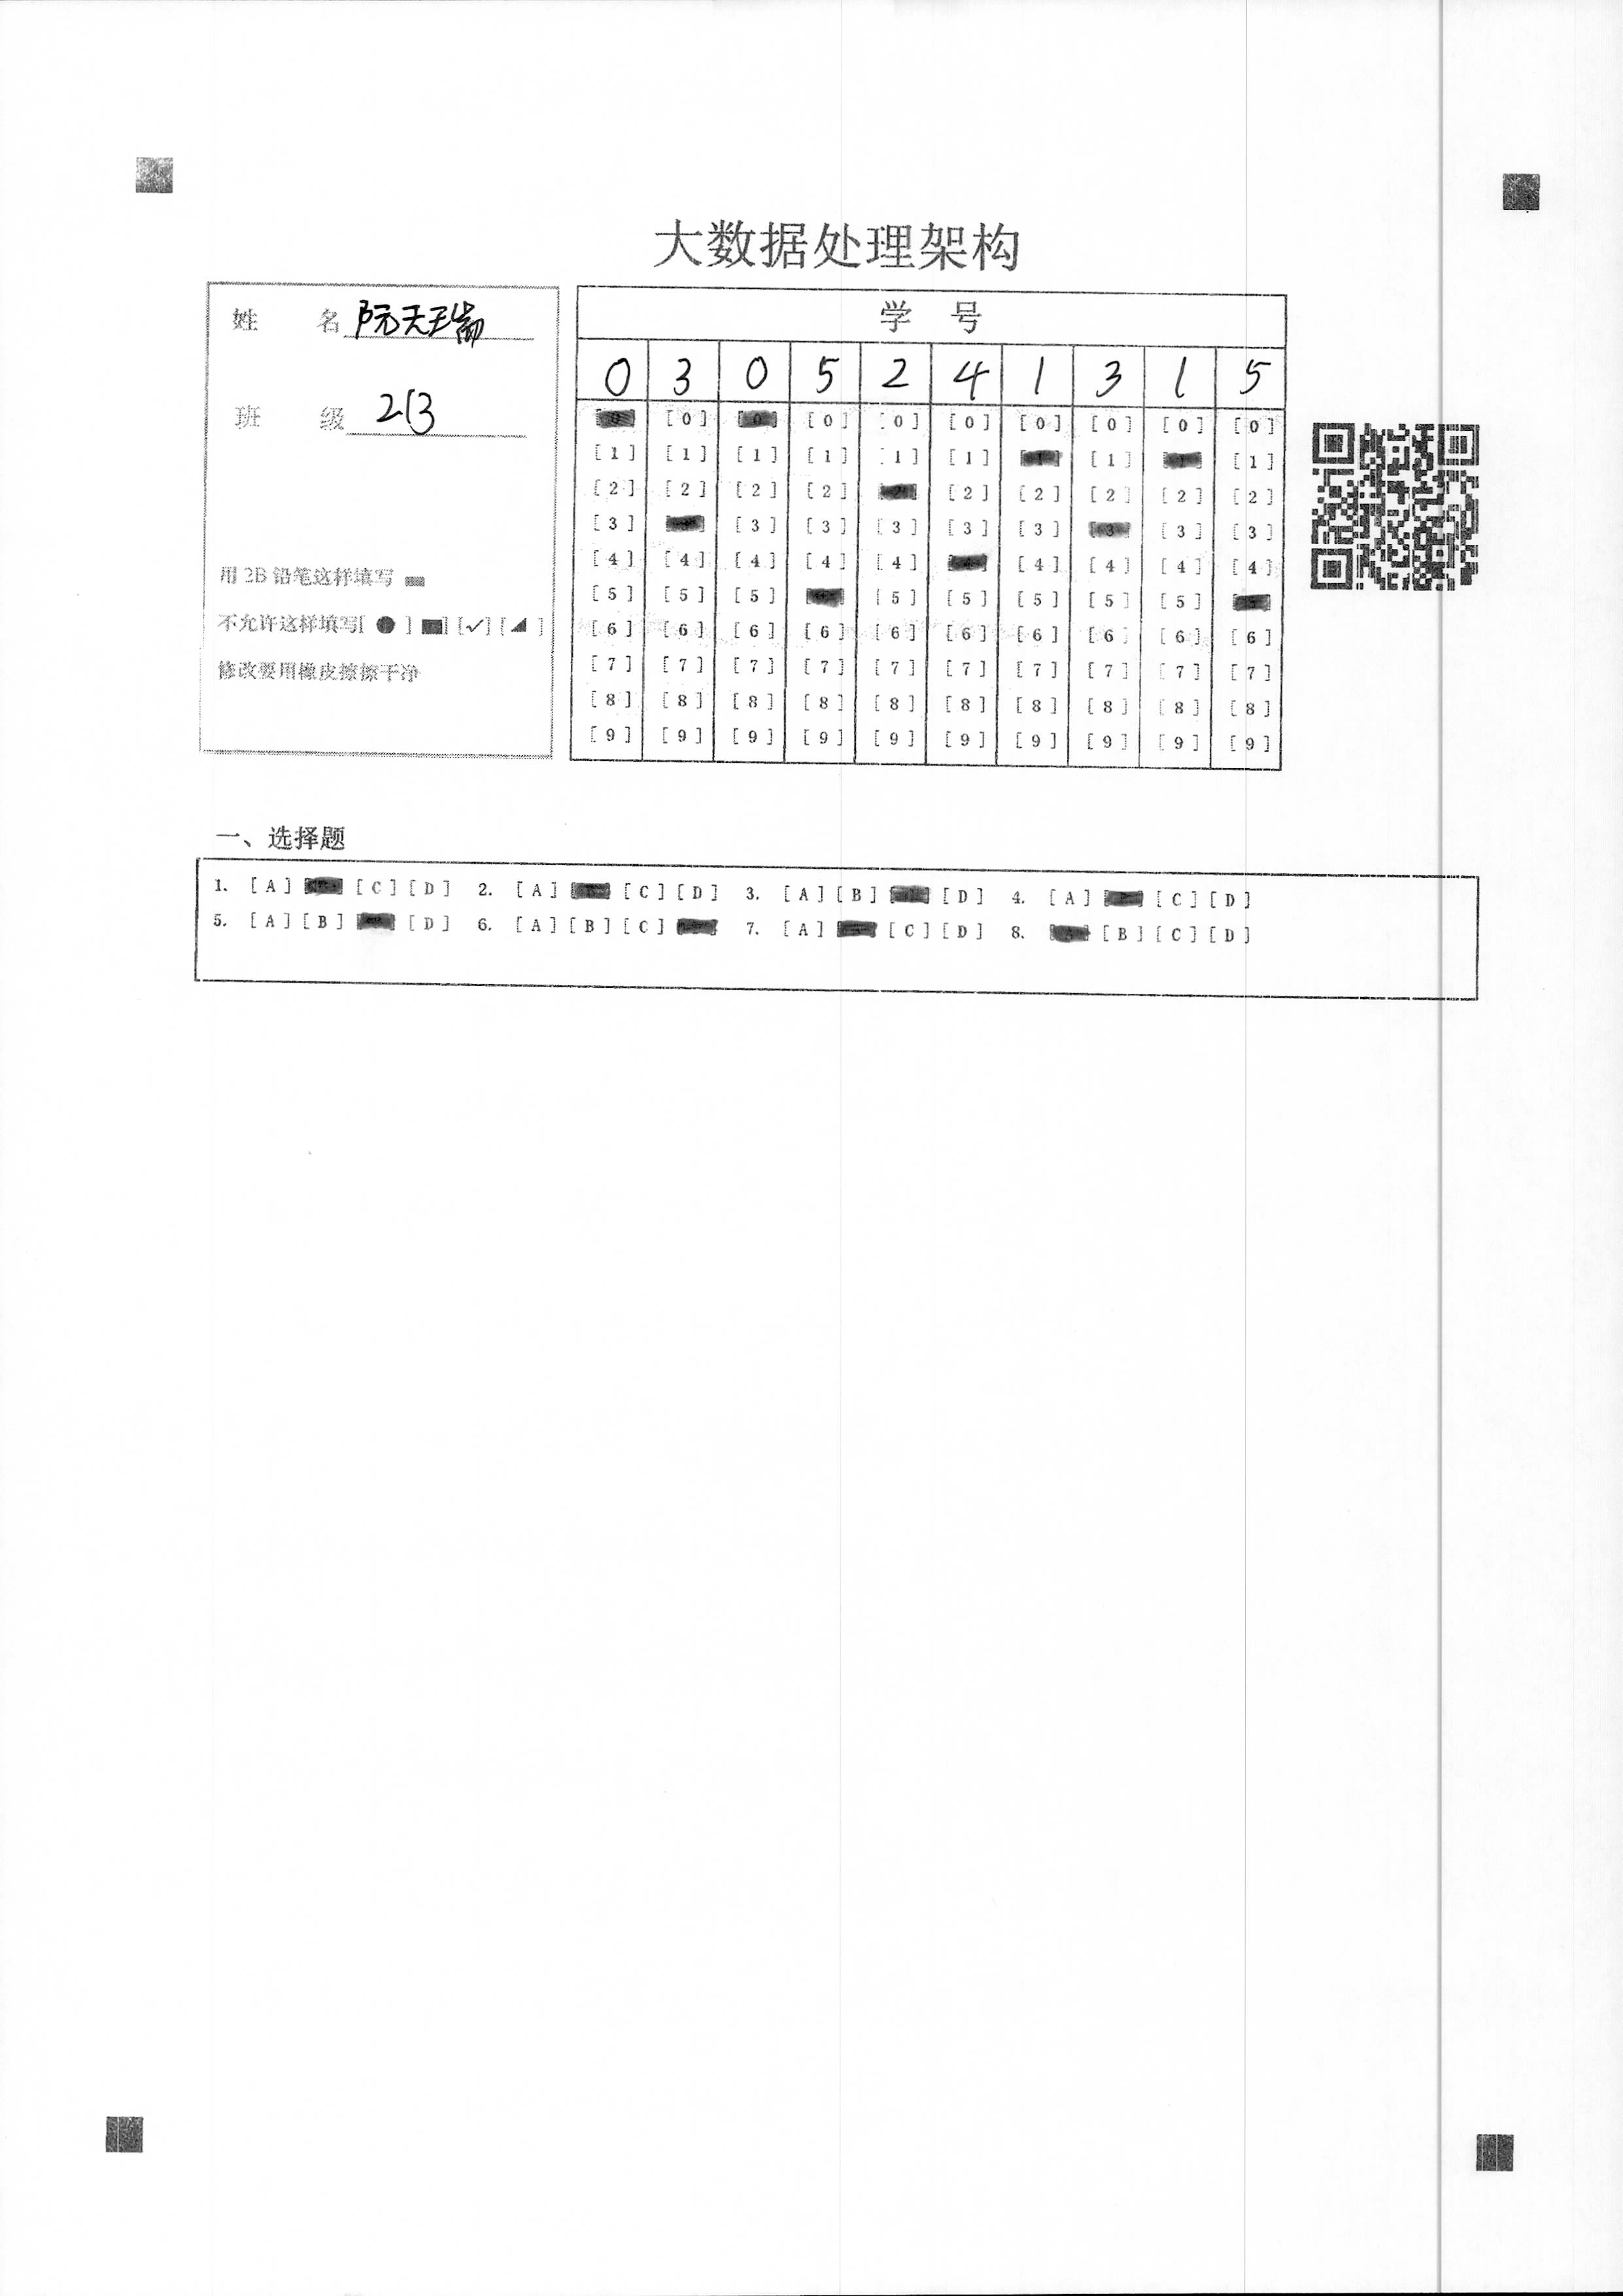 大数据处理架构
姓 名 阮天瑞
班 级 213
用 2B 铅笔这样填写
不允许这样填写[ ● ] [■] [✓] [◢ ]
修改要用橡皮擦擦干净
学 号
0 3 0 5 2 4 1 3 1 5
[0] [0] [0] [0] [0] [0] [0] [0]
[1] [1] [1] [1] [1] [1] [1] [1]
[2] [2] [2] [2] [2] [2] [2] [2] [2]
[3] [3] [3] [3] [3] [3] [3] [3]
[4] [4] [4] [4] [4] [4] [4] [4] [4]
[5] [5] [5] [5] [5] [5] [5] [5]
[6] [6] [6] [6] [6] [6] [6] [6] [6] [6]
[7] [7] [7] [7] [7] [7] [7] [7] [7] [7]
[8] [8] [8] [8] [8] [8] [8] [8] [8] [8]
[9] [9] [9] [9] [9] [9] [9] [9] [9] [9]
一、选择题
1. [A] [C] [D] 2. [A] [C] [D] 3. [A] [B] [D] 4. [A] [C] [D]
5. [A] [B] [D] 6. [A] [B] [C] 7. [A] [C] [D] 8. [B] [C] [D]